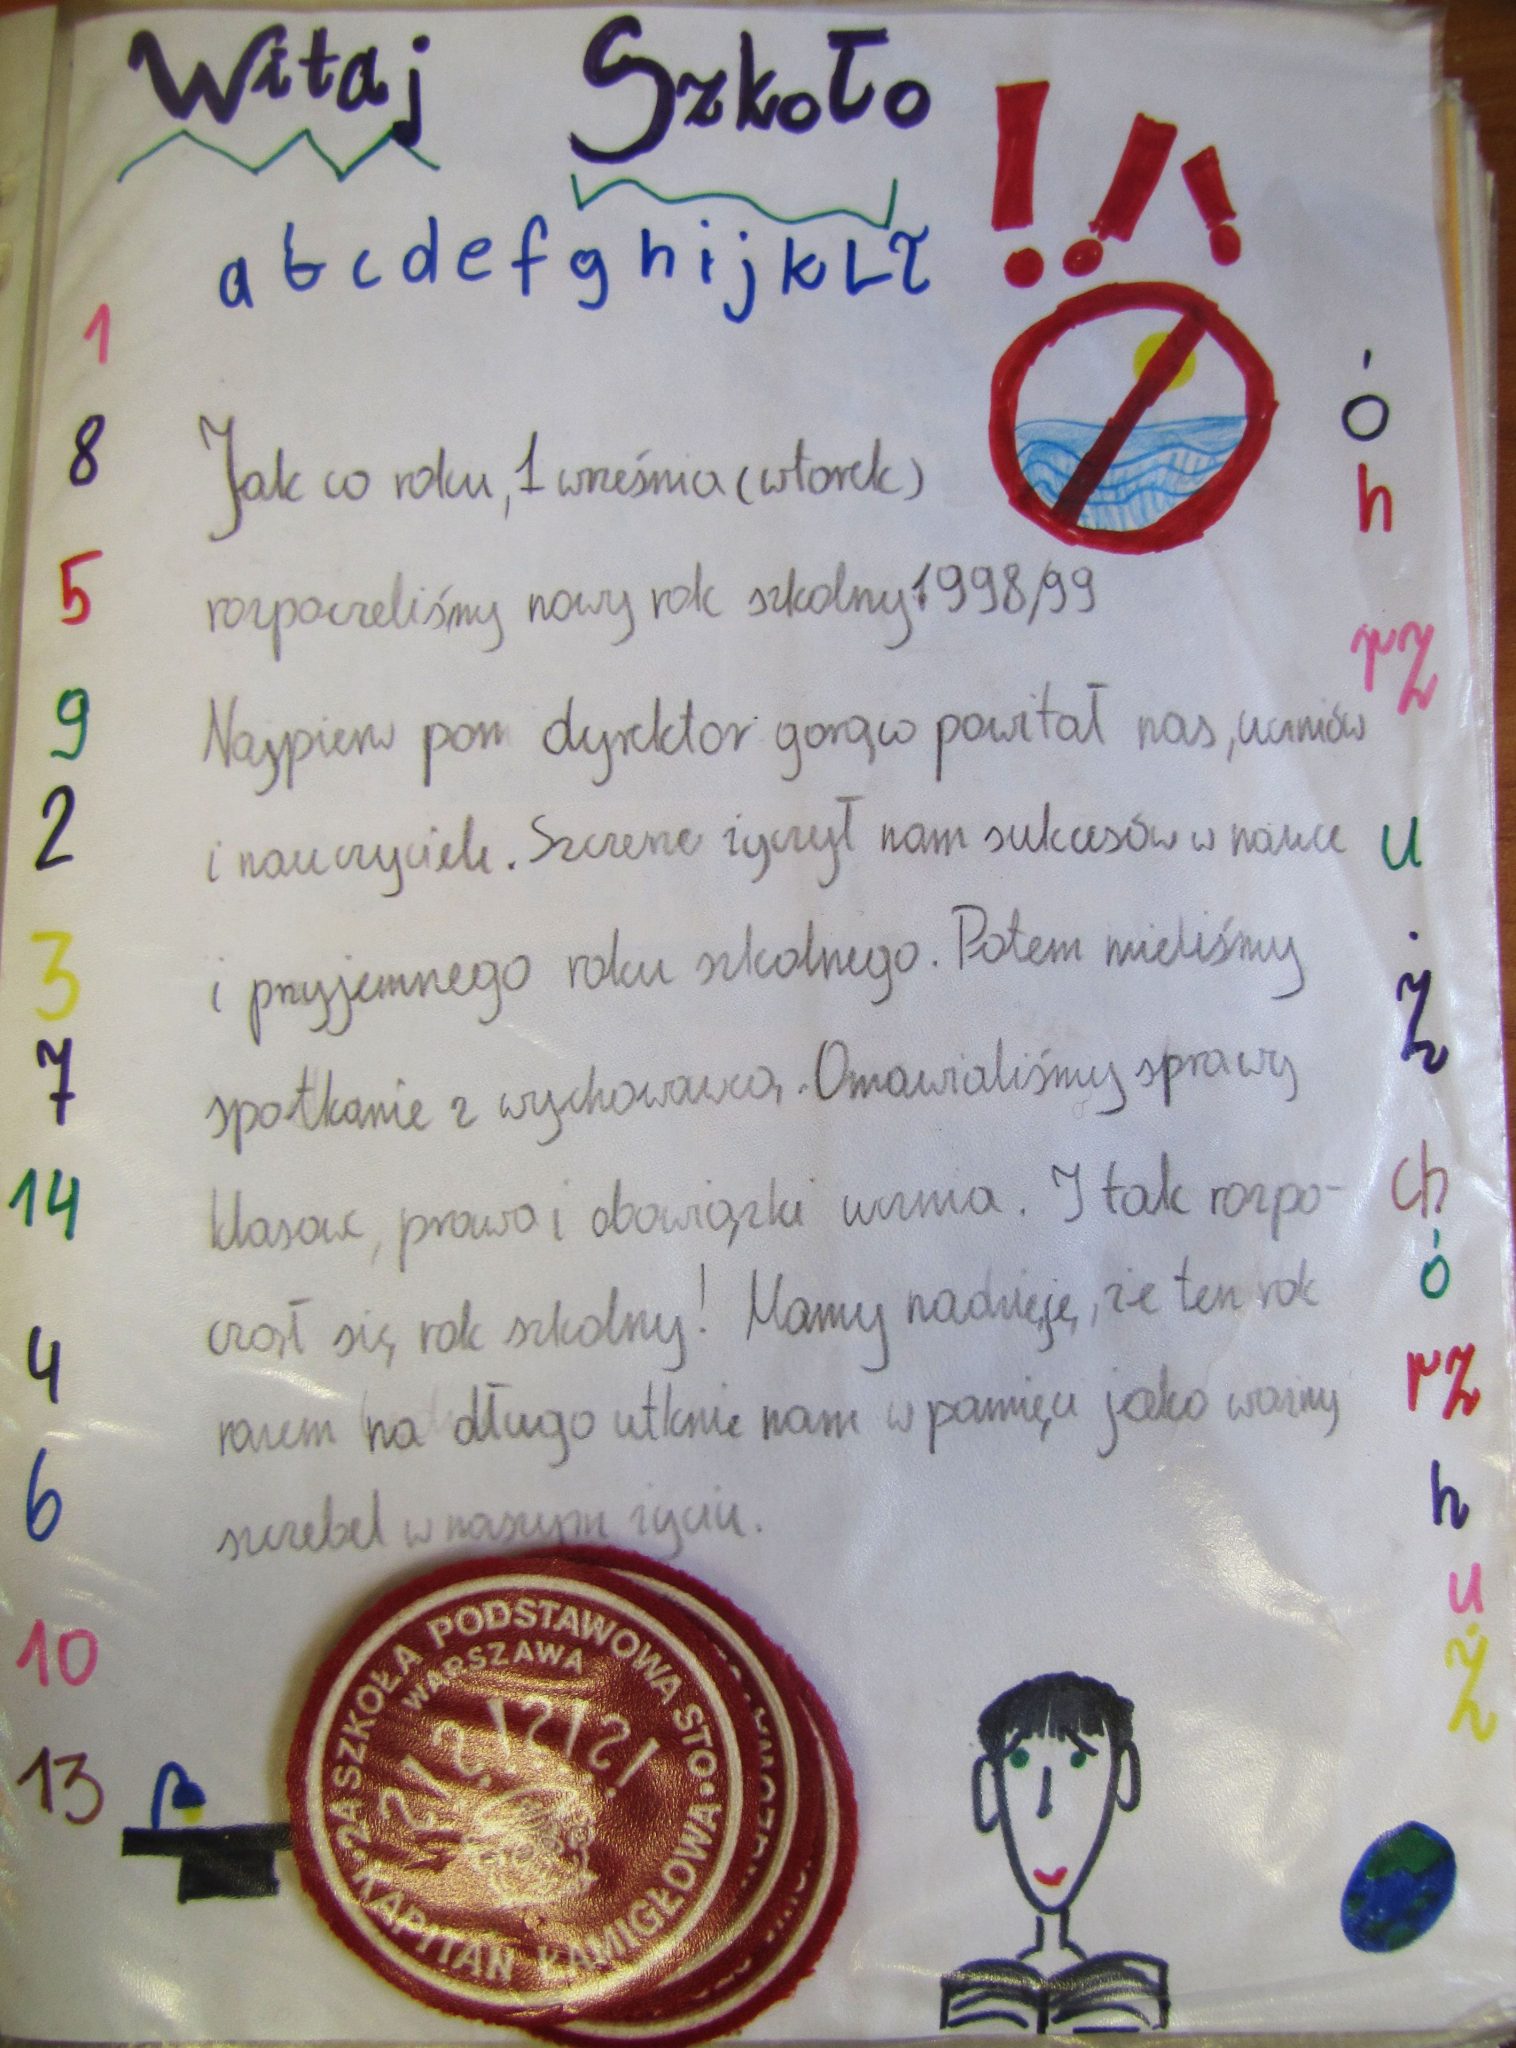 Witaj Szkoło !!!
abcdefghijklł
1
8
5
9
2
3
7
14
4
6
10
13
Jak co roku, 1 września (wtorek)
rozpoczeliśmy nowy rok szkolny 1998/99
Najpierw pan dyrektor gorąco powitał nas, uczniów
i nauczycieli. Szczerze życzył nam sukcesów w nauce
i przyjemnego roku szkolnego. Potem mieliśmy
spotkanie z wychowawcą. Omawialiśmy sprawy
klasowe, prawa i obowiązki ucznia. I tak rozpo-
czął się rok szkolny! Mamy nadzieję, że ten rok
razem na długo utknie nam w pamięci jako ważny
szczebel w naszym życiu.
ó
h
rz
u
ż
ch
ó
rz
h
u
ż
2A SZKOŁA PODSTAWOWA STO.
WARSZAWA
?!?!?!?!
KAPITAN ŁAMIGŁOWA